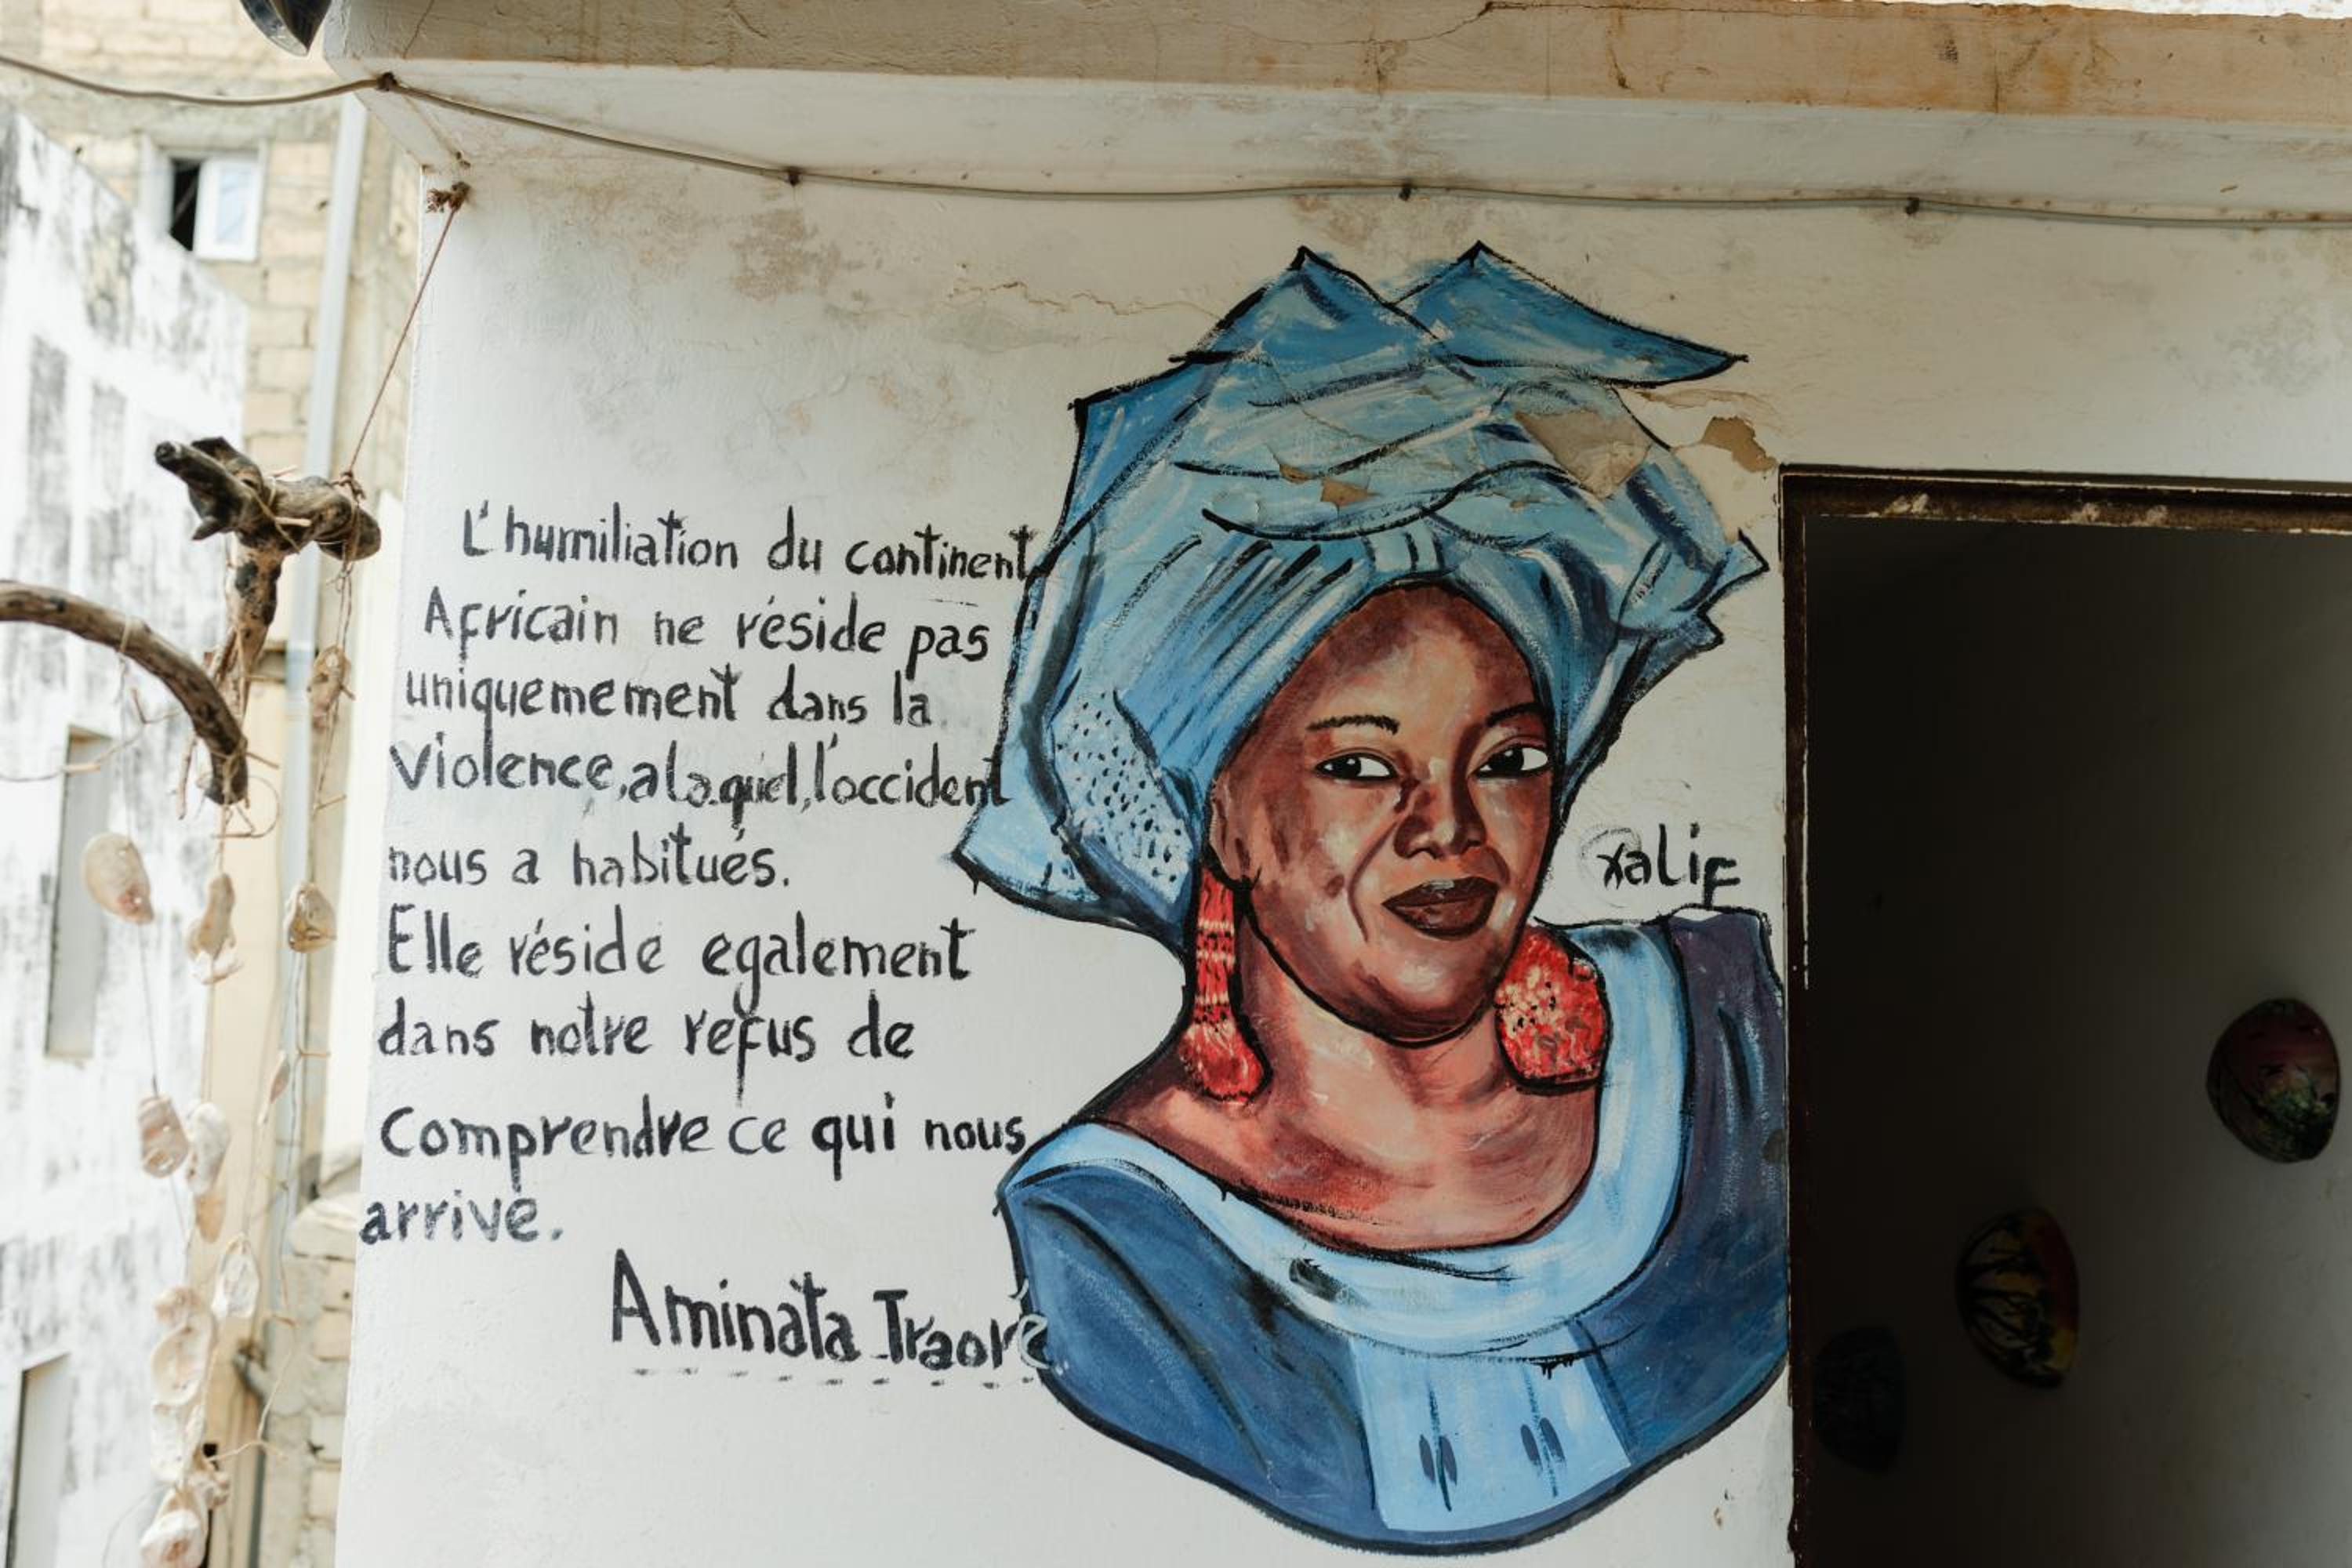 L'humiliation du continent
Africain ne réside pas
uniquemement dans la
violence, a laquel, l'occident
nous a habitués.
Elle réside egalement
dans notre refus de
Comprendre ce qui nous
arrive.
Aminata Traoré
xalif